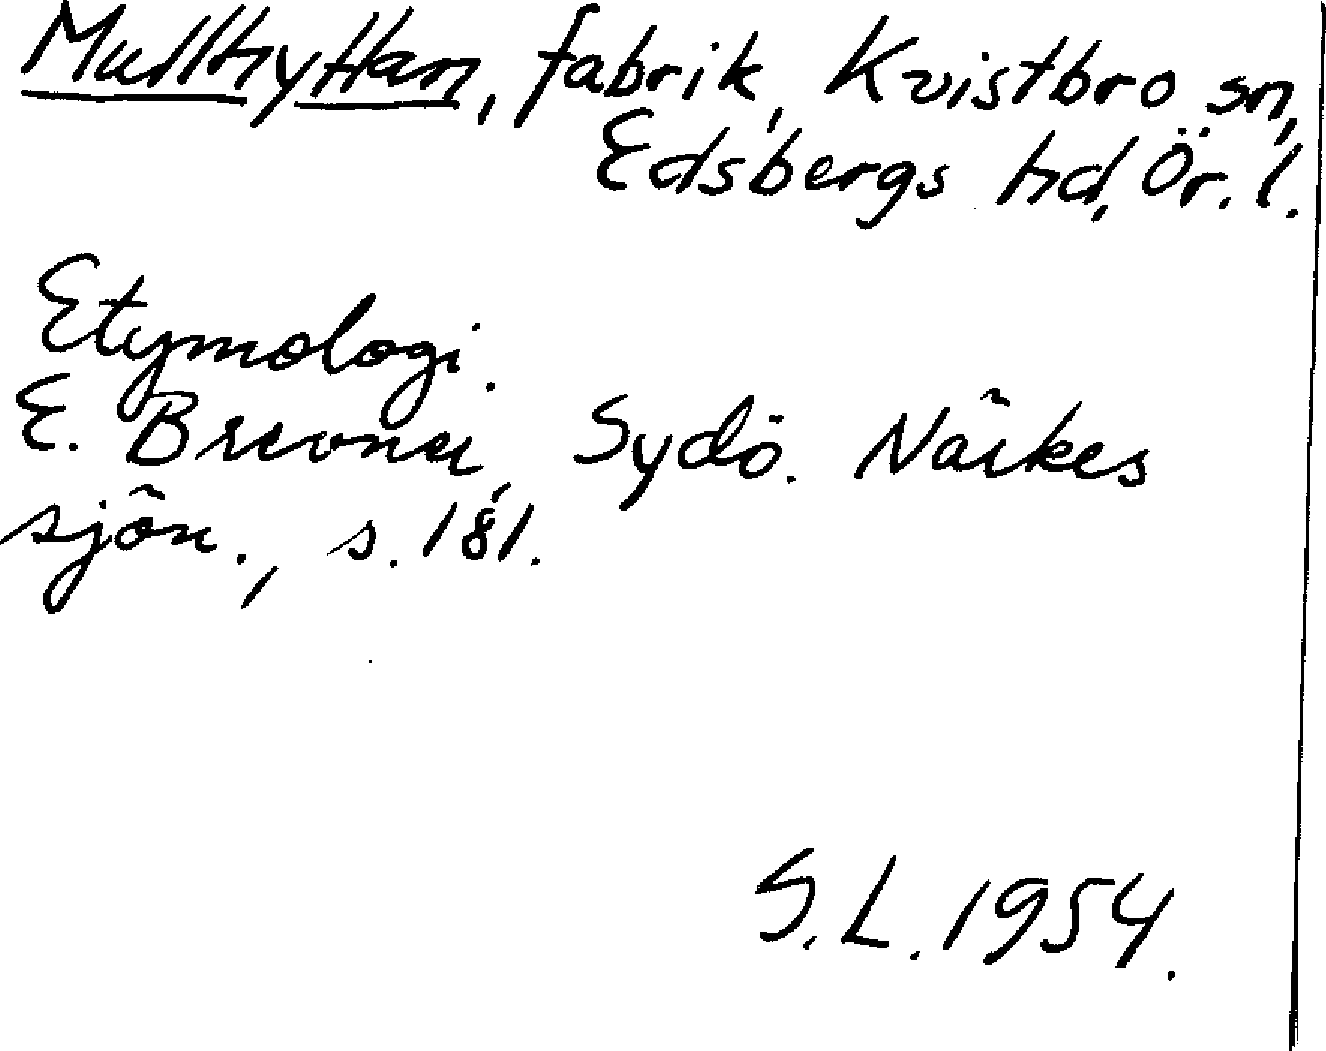 Mullhyttan, fabrik, Kvistbro sn,
Edsbergs hd, Ör. l.
Etymologi.
E. Brevner, Sydö. Närkes
sjön., s. 181.
S. L. 1954.